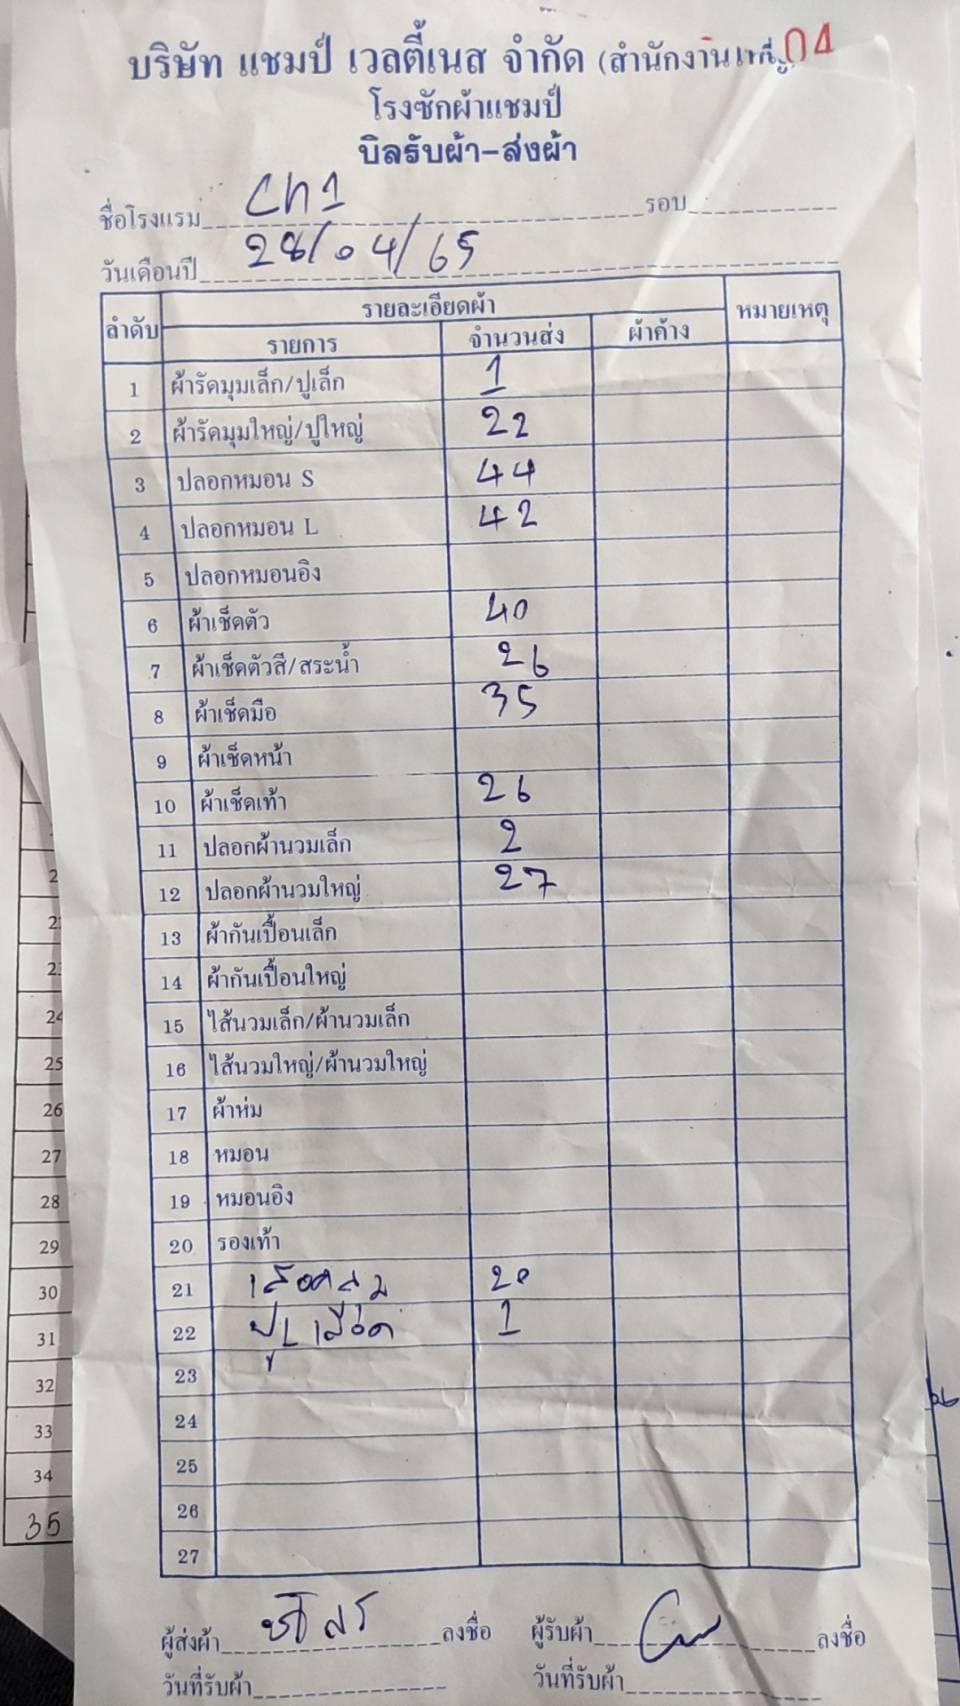 บริษัท แชมป์ เวลตี้เนส จำกัด (สำนักงานใหญ่) 04
โรงซักผ้าแชมป์
บิลรับผ้า-ส่งผ้า
ชื่อโรงแรม Ch1 รอบ
วันเดือนปี 28/04/65
ลำดับ รายละเอียดผ้า หมายเหตุ
รายการ จำนวนส่ง ผ้าค้าง
1 ผ้ารัดมุมเล็ก/ปูเล็ก 1
2 ผ้ารัดมุมใหญ่/ปูใหญ่ 22
3 ปลอกหมอน S 44
4 ปลอกหมอน L 42
5 ปลอกหมอนอิง
6 ผ้าเช็ดตัว 40
7 ผ้าเช็ดตัวสี/สระน้ำ 26
8 ผ้าเช็ดมือ 35
9 ผ้าเช็ดหน้า
10 ผ้าเช็ดเท้า 26
11 ปลอกผ้านวมเล็ก 2
12 ปลอกผ้านวมใหญ่ 27
13 ผ้ากันเปื้อนเล็ก
14 ผ้ากันเปื้อนใหญ่
15 ไส้นวมเล็ก/ผ้านวมเล็ก
16 ไส้นวมใหญ่/ผ้านวมใหญ่
17 ผ้าห่ม
18 หมอน
19 หมอนอิง
20 รองเท้า
21 20
22 1
23
24
25
26
27
ผู้ส่งผ้า ลงชื่อ ผู้รับผ้า ลงชื่อ
วันที่รับผ้า วันที่รับผ้า
24
25
26
27
28
29
30
31
32
33
34
35